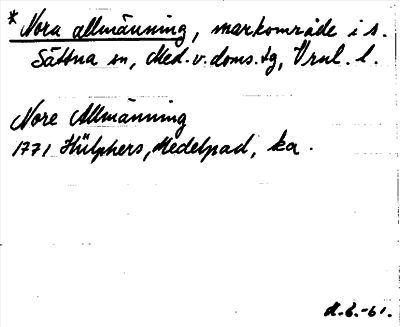 * Nora allmänning, markområde i s.
Sättna sn, Med. v. doms.sg, Vrnl. l.
Nore Allmänning
1771 Hülphers, Medelpad, ka.
-61.